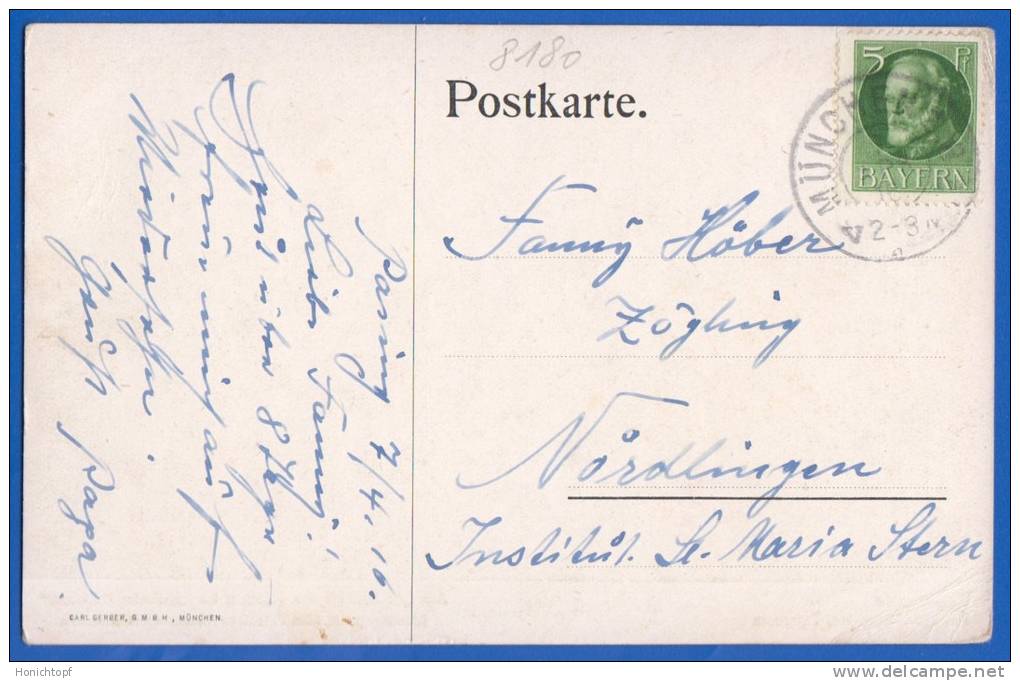 8180
Postkarte.
5 Pf
BAYERN
MÜNCH
2-3 N
Fanny Höber
Zögling
Nördlingen
Institut. St. Maria Stern
Pasing 7/4. 16.
Liebe Fanny!
Heut über 8 Tage
freu mich auf
Wiedersehn.
Gruß Papa.
CARL GERBER, G.M.B.H., MÜNCHEN.
Honichtopf
www.delcampe.net